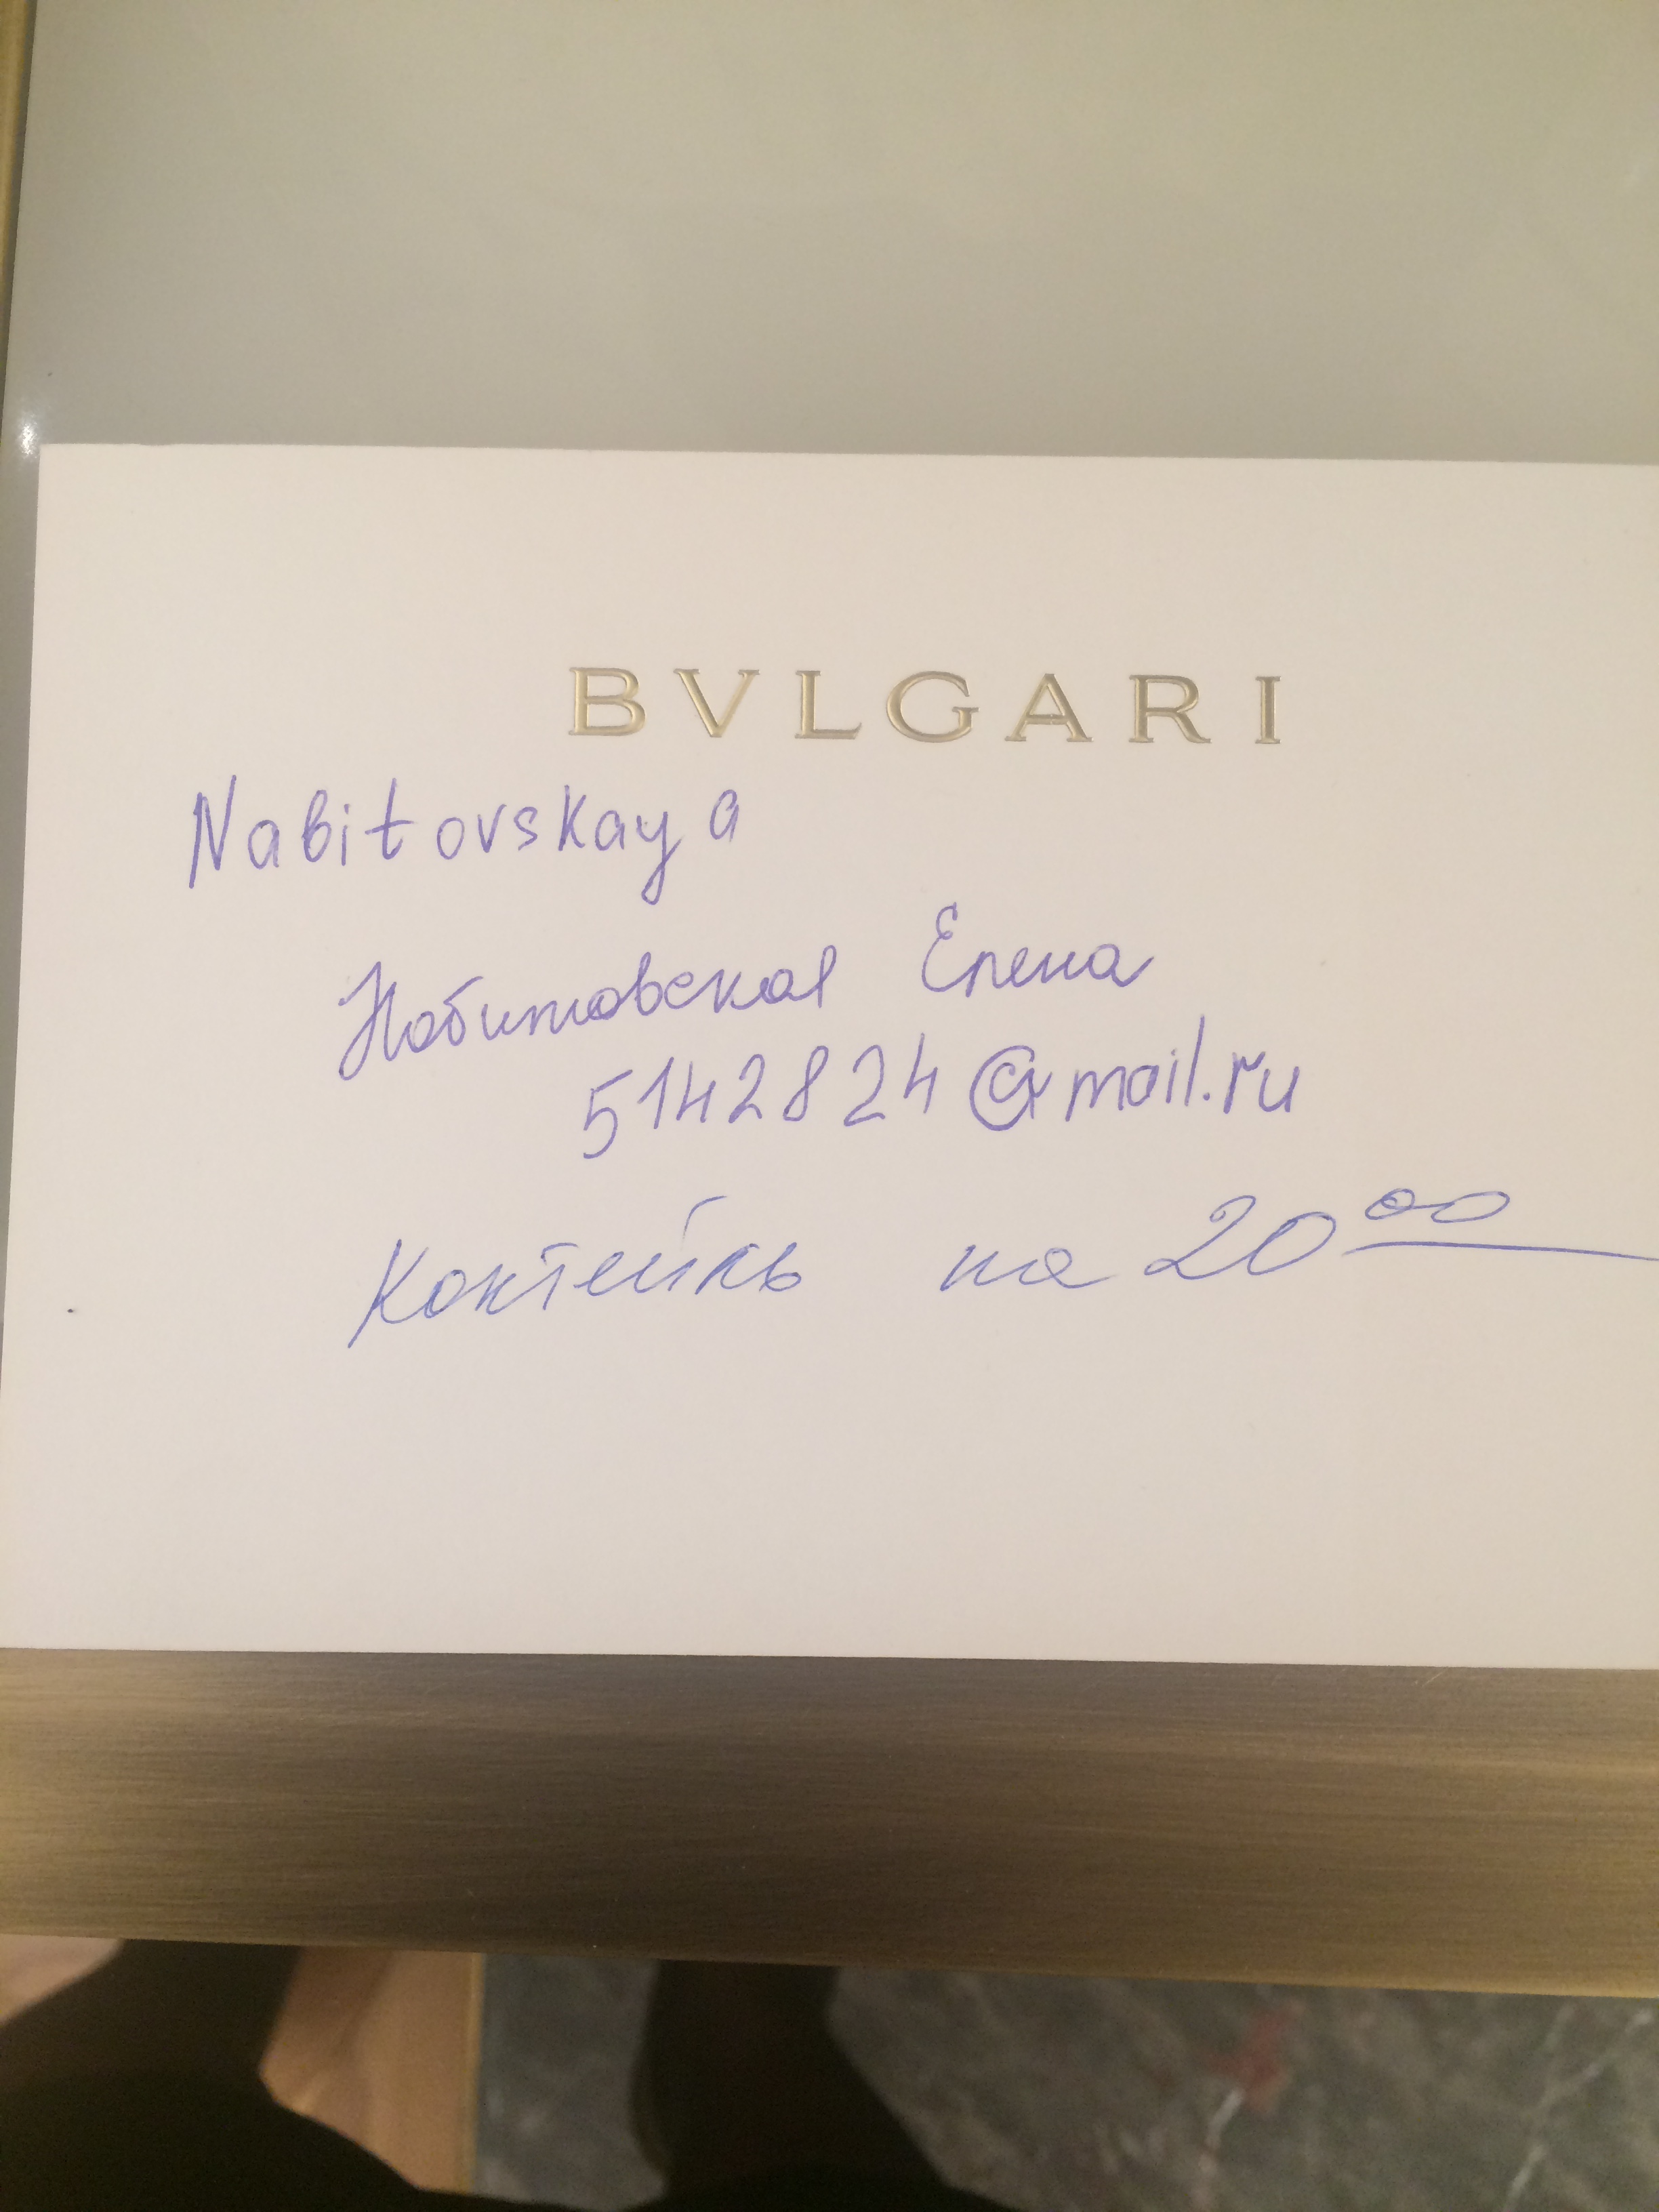 BVLGARI
Nabitovskaya
Набитовская Елена
5142824@mail.ru
Коктейль на 20 00